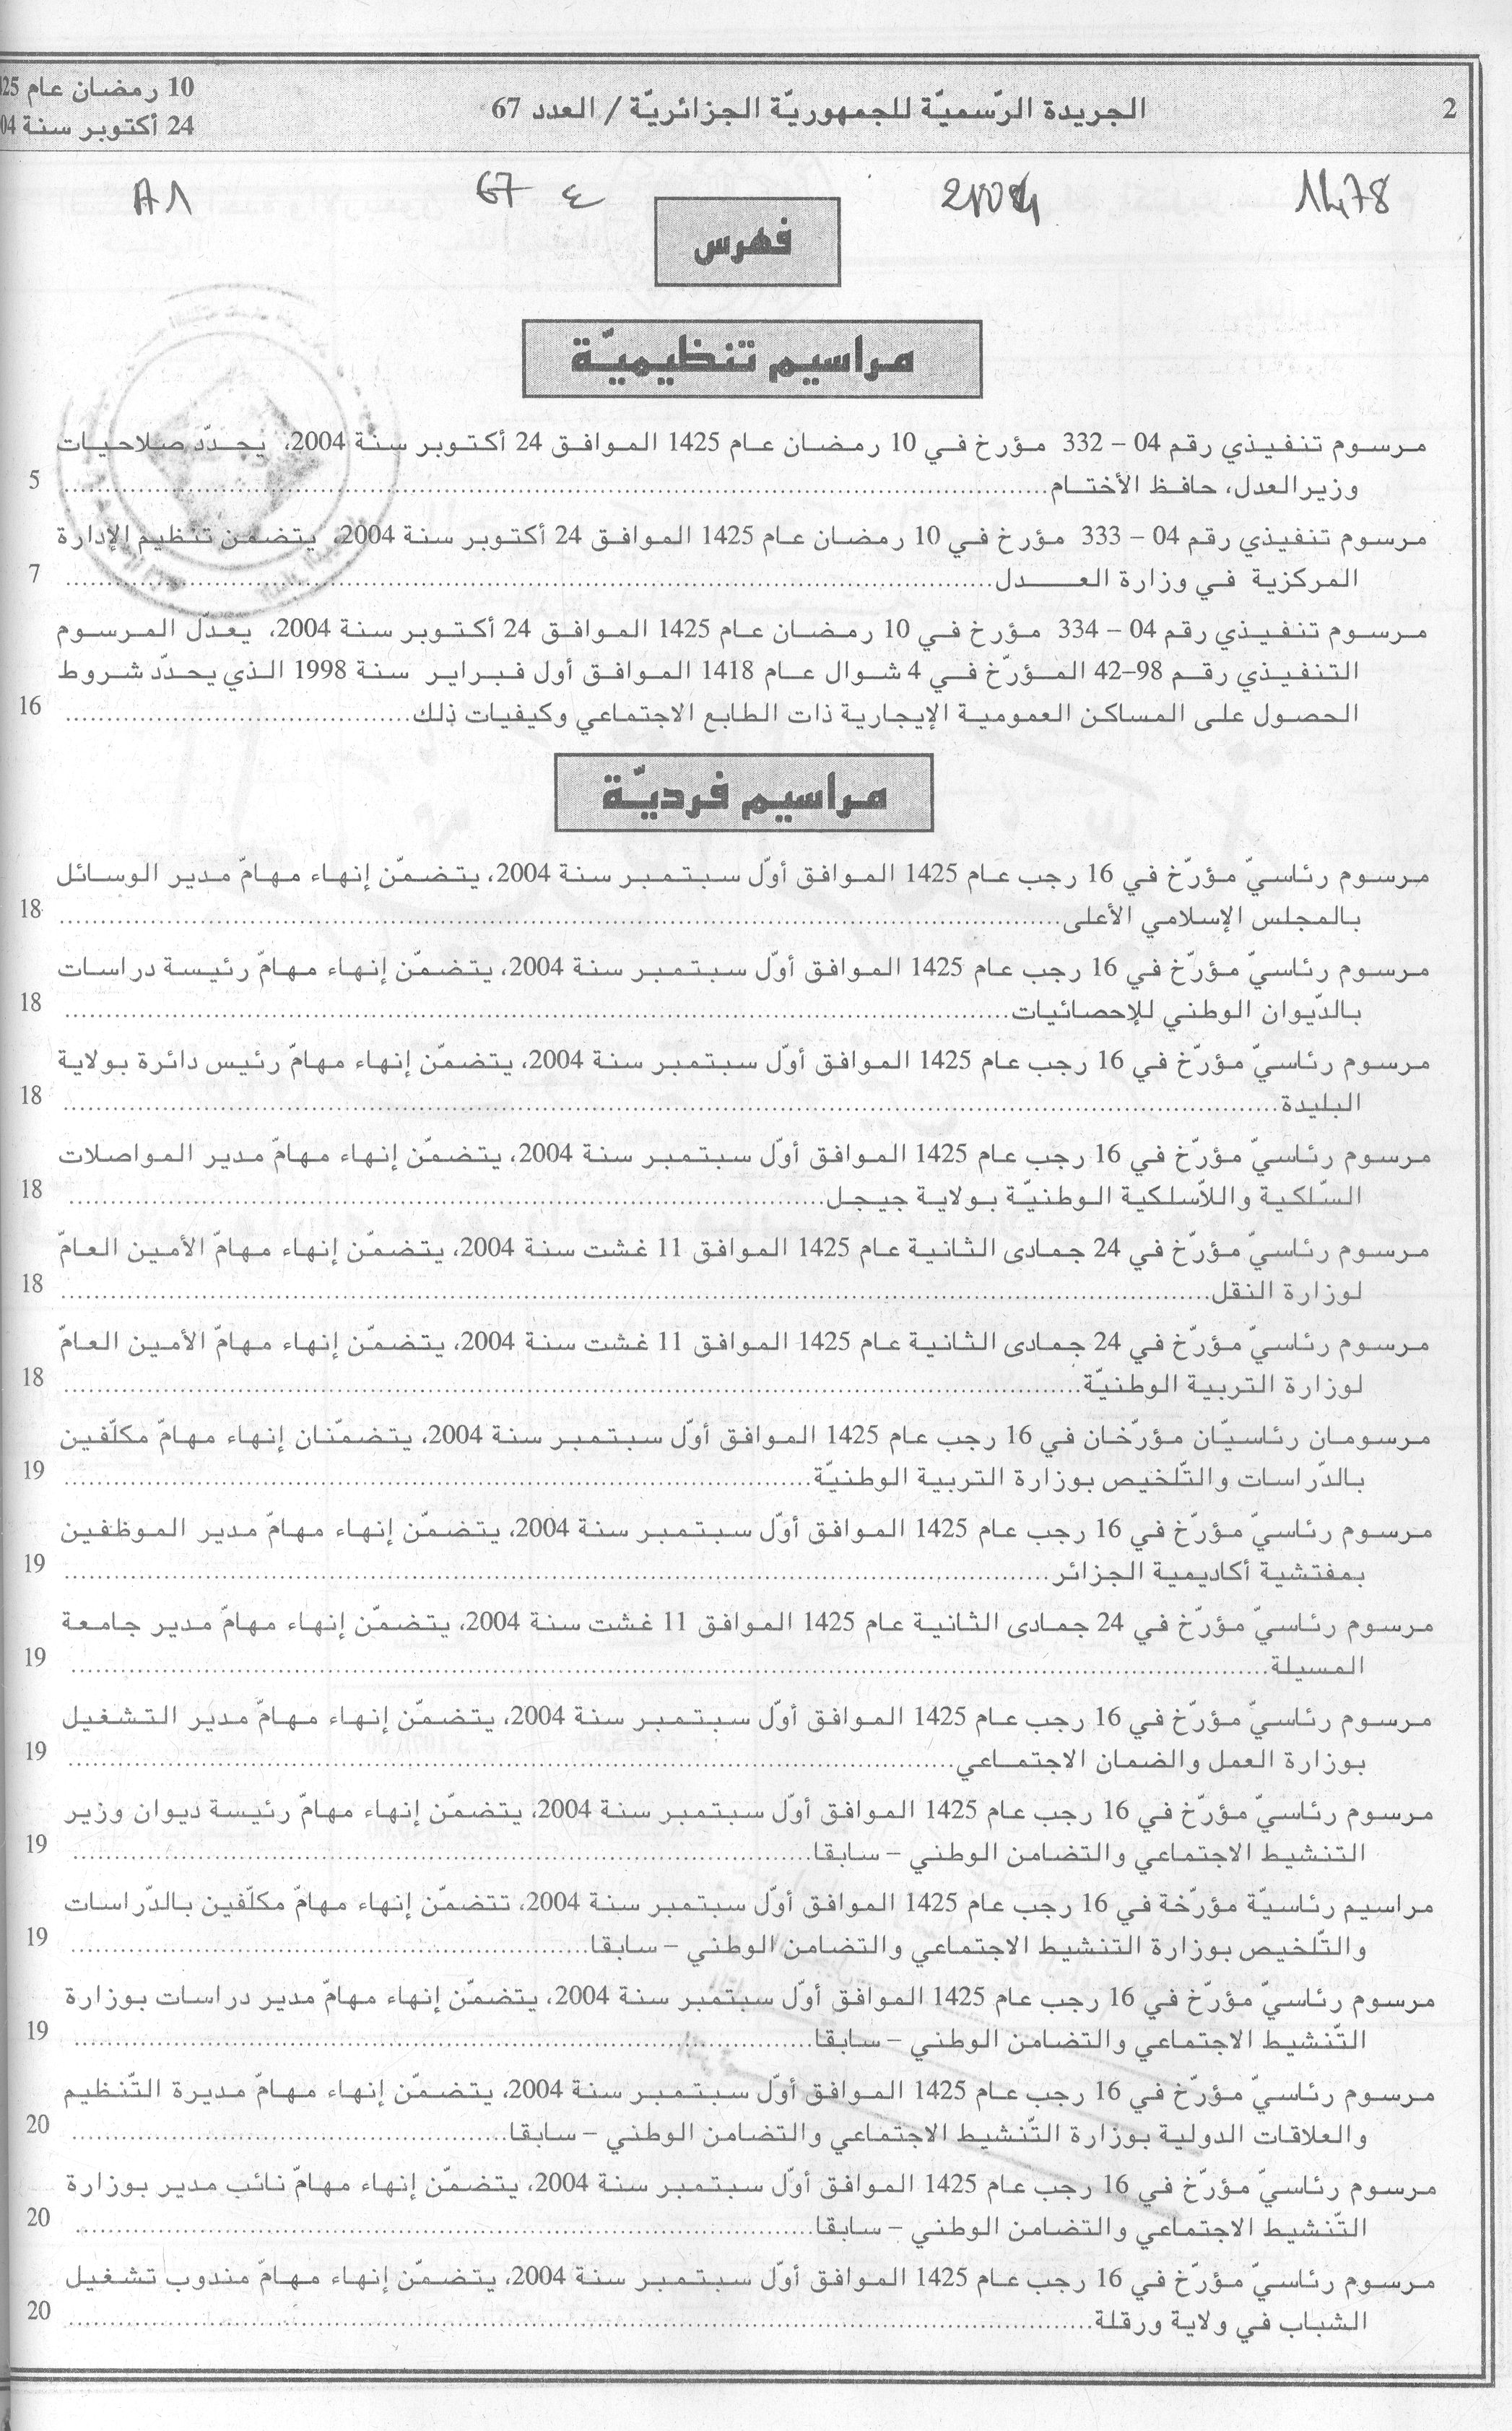 2
الجريدة الرّسميّة للجمهوريّة الجزائريّة / العدد 67
10 رمضان عام
24 أكتوبر سنة
1478
ع 67
A1
فهرس
مراسيم تنظيميّة
مرسوم تنفيذي رقم 04 – 332 مؤرخ في 10 رمضان عام 1425 الموافق 24 أكتوبر سنة 2004، يحدّد صلاحيات
وزير العدل، حافظ الأختام.......... 5
مرسوم تنفيذي رقم 04 – 333 مؤرخ في 10 رمضان عام 1425 الموافق 24 أكتوبر سنة 2004، يتضمن تنظيم الإدارة
المركزية في وزارة العدل.......... 7
مرسوم تنفيذي رقم 04 – 334 مؤرخ في 10 رمضان عام 1425 الموافق 24 أكتوبر سنة 2004، يعدّل المرسوم
التنفيذي رقم 98–42 المؤرّخ في 4 شوال عام 1418 الموافق أول فبراير سنة 1998 الذي يحدّد شروط
الحصول على المساكن العمومية الإيجارية ذات الطابع الاجتماعي وكيفيات ذلك.......... 16
مراسيم فرديّة
مرسوم رئاسيّ مؤرّخ في 16 رجب عام 1425 الموافق أوّل سبتمبر سنة 2004، يتضمّن إنهاء مهامّ مدير الوسائل
بالمجلس الإسلامي الأعلى.......... 18
مرسوم رئاسيّ مؤرّخ في 16 رجب عام 1425 الموافق أوّل سبتمبر سنة 2004، يتضمّن إنهاء مهامّ رئيسة دراسات
بالدّيوان الوطني للإحصائيات.......... 18
مرسوم رئاسيّ مؤرّخ في 16 رجب عام 1425 الموافق أوّل سبتمبر سنة 2004، يتضمّن إنهاء مهامّ رئيس دائرة بولاية
البليدة.......... 18
مرسوم رئاسيّ مؤرّخ في 16 رجب عام 1425 الموافق أوّل سبتمبر سنة 2004، يتضمّن إنهاء مهامّ مدير المواصلات
السّلكية واللاّسلكية الوطنيّة بولاية جيجل.......... 18
مرسوم رئاسيّ مؤرّخ في 24 جمادى الثانية عام 1425 الموافق 11 غشت سنة 2004، يتضمّن إنهاء مهامّ الأمين العامّ
لوزارة النقل.......... 18
مرسوم رئاسيّ مؤرّخ في 24 جمادى الثانية عام 1425 الموافق 11 غشت سنة 2004، يتضمّن إنهاء مهامّ الأمين العامّ
لوزارة التربية الوطنيّة.......... 18
مرسومان رئاسيّان مؤرّخان في 16 رجب عام 1425 الموافق أوّل سبتمبر سنة 2004، يتضمّنان إنهاء مهامّ مكلّفين
بالدّراسات والتّلخيص بوزارة التربية الوطنيّة.......... 19
مرسوم رئاسيّ مؤرّخ في 16 رجب عام 1425 الموافق أوّل سبتمبر سنة 2004، يتضمّن إنهاء مهامّ مدير الموظفين
بمفتشية أكاديمية الجزائر.......... 19
مرسوم رئاسيّ مؤرّخ في 24 جمادى الثانية عام 1425 الموافق 11 غشت سنة 2004، يتضمّن إنهاء مهامّ مدير جامعة
المسيلة.......... 19
مرسوم رئاسيّ مؤرّخ في 16 رجب عام 1425 الموافق أوّل سبتمبر سنة 2004، يتضمّن إنهاء مهامّ مدير التشغيل
بوزارة العمل والضمان الاجتماعي.......... 19
مرسوم رئاسيّ مؤرّخ في 16 رجب عام 1425 الموافق أوّل سبتمبر سنة 2004، يتضمّن إنهاء مهامّ رئيسة ديوان وزير
التنشيط الاجتماعي والتضامن الوطني – سابقا.......... 19
مراسيم رئاسيّة مؤرّخة في 16 رجب عام 1425 الموافق أوّل سبتمبر سنة 2004، تتضمّن إنهاء مهامّ مكلّفين بالدّراسات
والتّلخيص بوزارة التنشيط الاجتماعي والتضامن الوطني – سابقا.......... 19
مرسوم رئاسيّ مؤرّخ في 16 رجب عام 1425 الموافق أوّل سبتمبر سنة 2004، يتضمّن إنهاء مهامّ مدير دراسات بوزارة
التّنشيط الاجتماعي والتضامن الوطني – سابقا.......... 19
مرسوم رئاسيّ مؤرّخ في 16 رجب عام 1425 الموافق أوّل سبتمبر سنة 2004، يتضمّن إنهاء مهامّ مديرة التّنظيم
والعلاقات الدولية بوزارة التّنشيط الاجتماعي والتضامن الوطني – سابقا.......... 20
مرسوم رئاسيّ مؤرّخ في 16 رجب عام 1425 الموافق أوّل سبتمبر سنة 2004، يتضمّن إنهاء مهامّ نائب مدير بوزارة
التّنشيط الاجتماعي والتضامن الوطني – سابقا.......... 20
مرسوم رئاسيّ مؤرّخ في 16 رجب عام 1425 الموافق أوّل سبتمبر سنة 2004، يتضمّن إنهاء مهامّ مندوب تشغيل
الشباب في ولاية ورقلة.......... 20